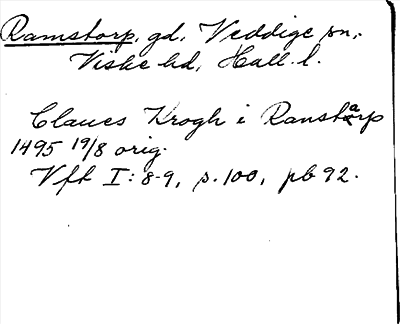 Ramstorp, gd, Veddige sn,
Viske hd, Hall. l.
Claues Krogh i Ranstarp
1495 19/8 orig.
Vft I: 8-9, s. 100, pb 92.